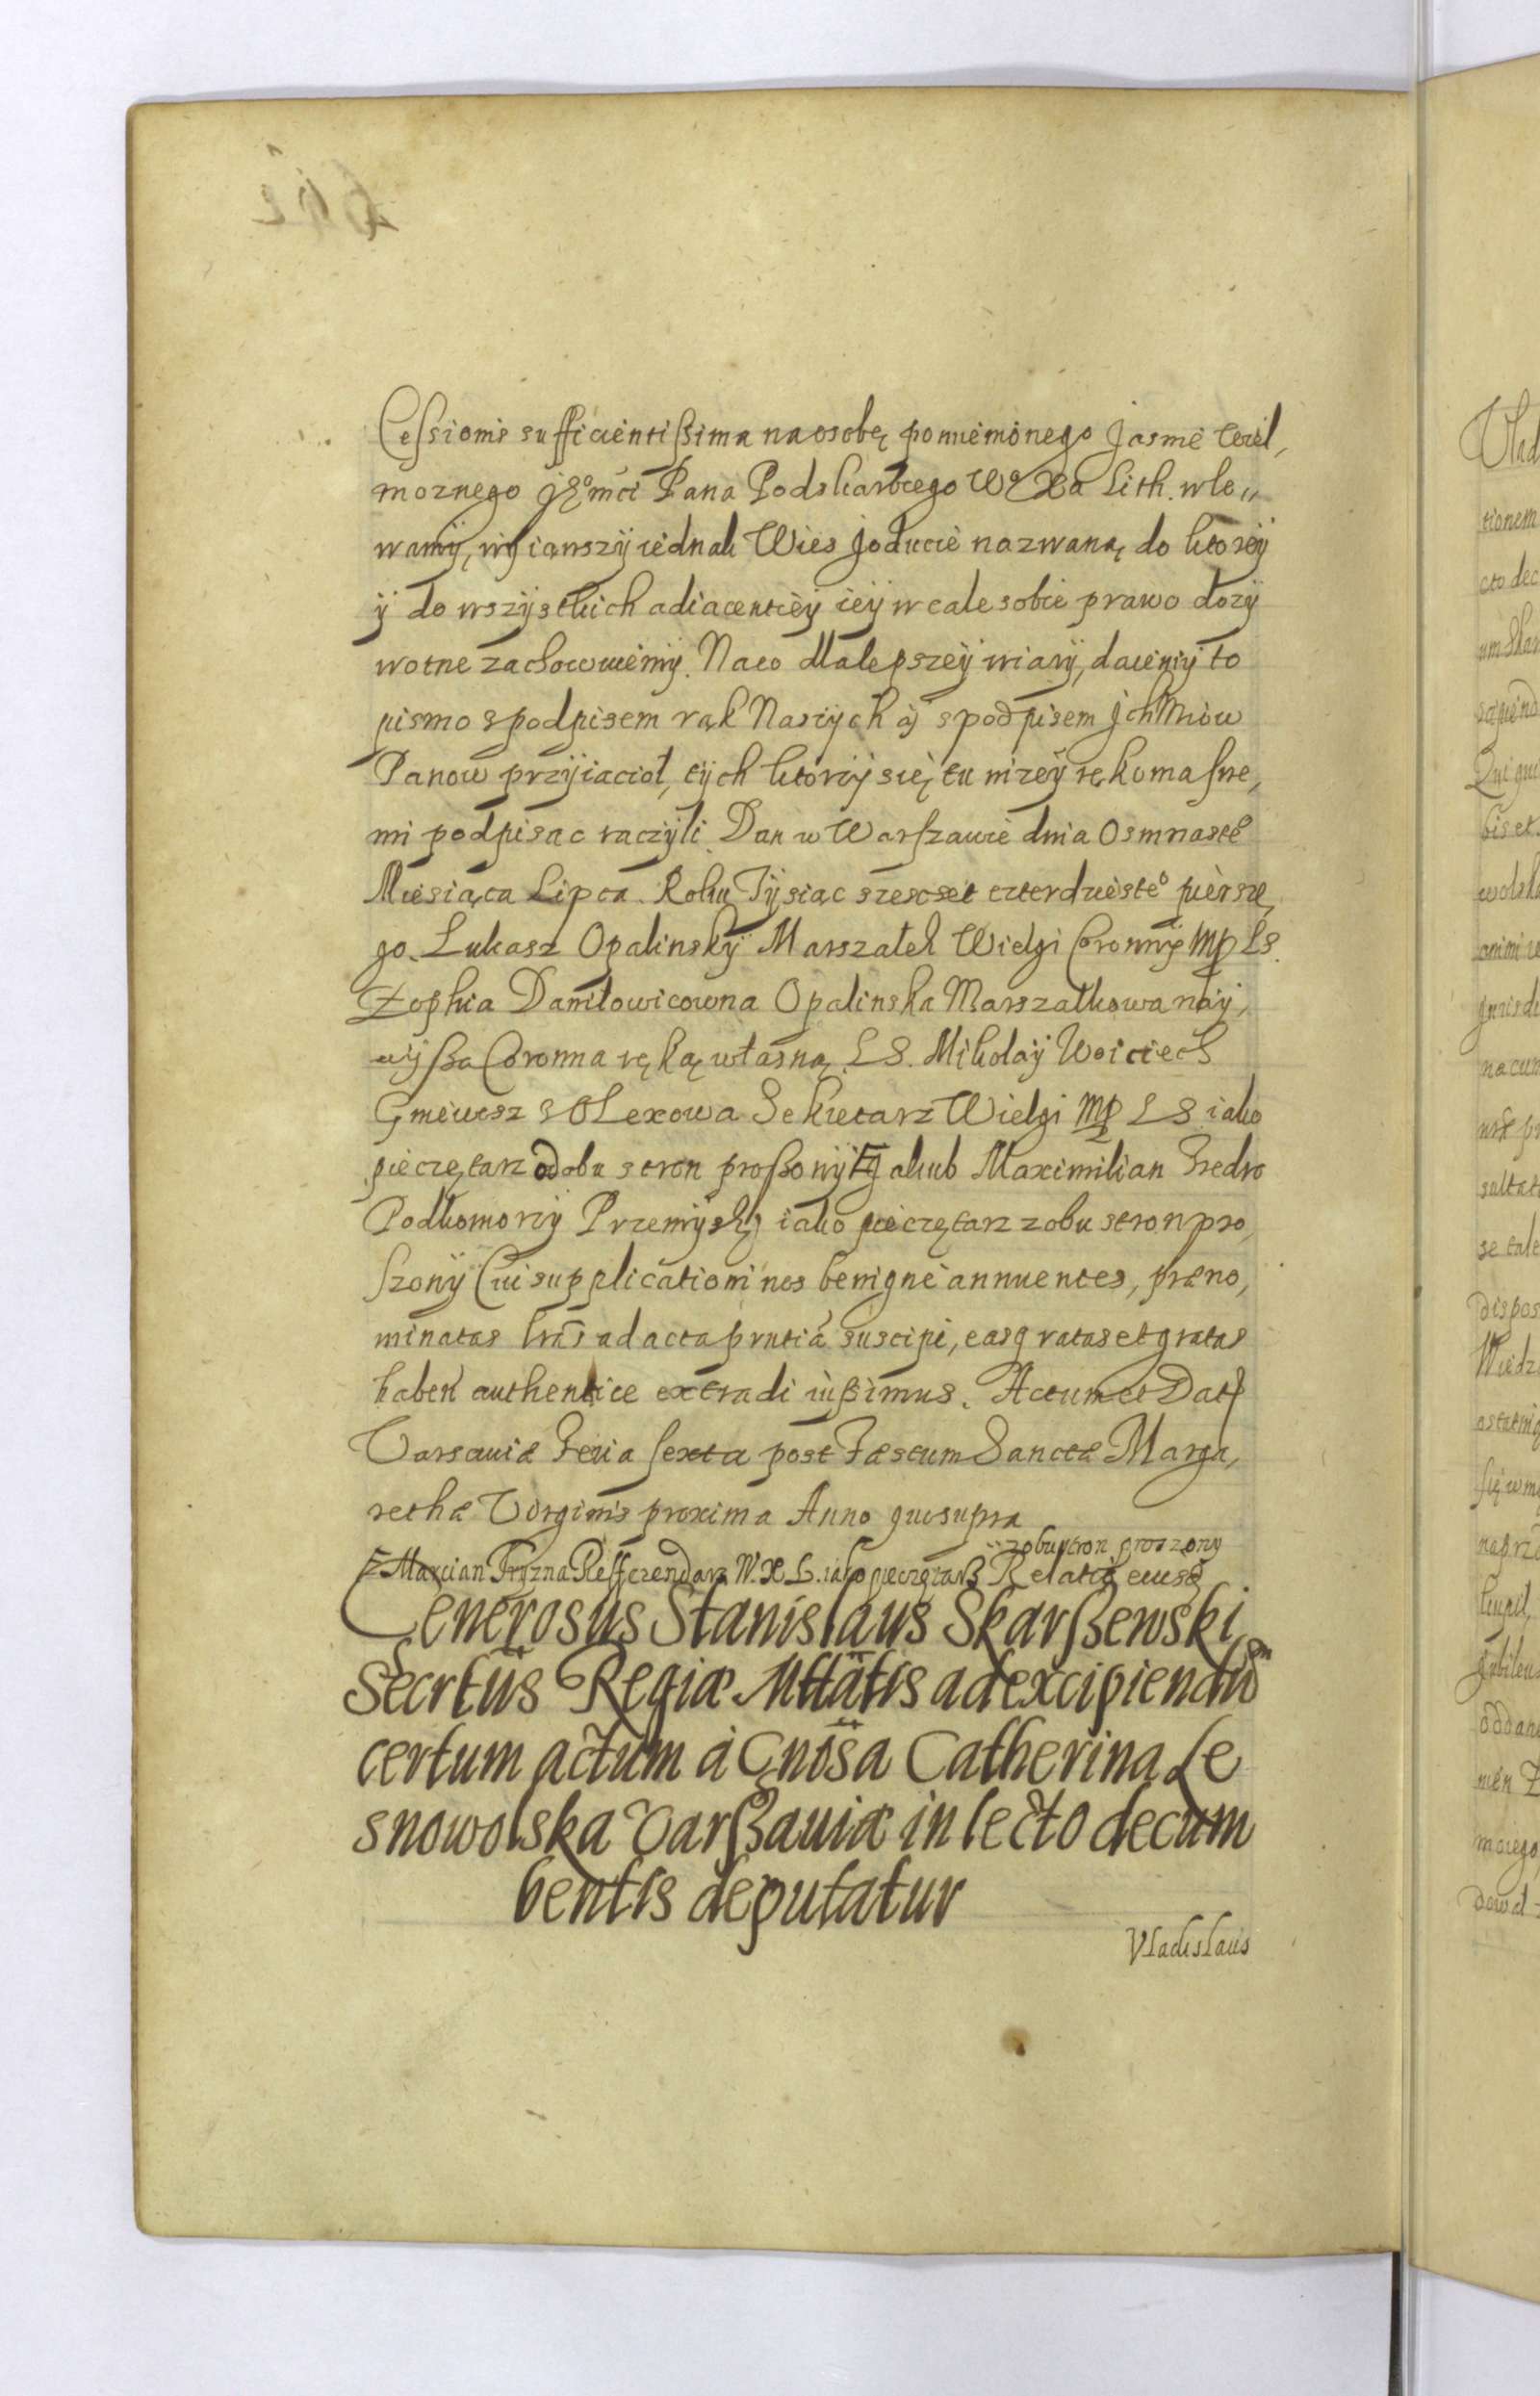 Cessionis sufficientissima na osobę pomienionego Jasnie Wiel,
moznego Jego mci Pana Podskarbiego Wo Xa Lith. wle„
wamy, wyiąwszy iednak Wies Joducie nazwaną do ktorey
y do wszystkich adiacentiey iey w cale sobie prawo dozy
wotne zachowuiemy. Na co dla lepszey wiary, daiemy to
pismo s podpisem rąk Naszych y s podpisem Jch Mciow
Panow przyiacioł, tych ktorzy się tu nizey rękoma swe,
mi podpisac raczyli. Dan w Warszawie dnia Osmnaste
Miesiąca Lipca. Roku Tysiąc szescset czterdzieste° pierwsze,
go. Lukasz Opalinsky Marszałek Wielgi Coronny mp LS.
Zophia Daniłowicowna Opalinska Marszałkowa nay,
wyssa Coronna ręką własną. LS. Mikolay Woiciech
Gniewosz s Olexowa Sekretarz Wielgi mp LS iako
pieczętarz od obu stron proszony Jakub Maximilian Fredro
Podkomorzy Przemysky iako pieczętarz z obu stron pro,
szony Cui supplicationi nos benigne annuentes, præno,
minatas lrās ad acta pntia suscipi, easq ratas et gratas
haberi authentice extradi iussimus. Actum et Dat
Varsaviæ Feria sexta post Fæstum Sanctæ Marga,
rethæ Virginis proxima Anno quo supra
z obu stron proszony
Marcian Tryzna Refferendarz W. X. L. iako pieczętarz Relatio eiusd
Generosus Stanislaus Skarszewski
Secrtus Regiæ Mttatis ad excipiendu
certum actum à Gnosa Catherina Le
snowolska Varszaviæ in lecto decum
bentis deputatur
Vladislaus